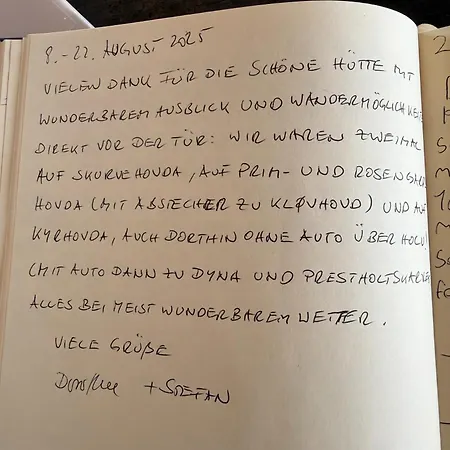 8.-22. AUGUST 2025
VIELEN DANK FÜR DIE SCHÖNE HÜTTE MIT
WUNDERBAREM AUSBLICK UND WANDERMÖGLICHKEIT
DIREKT VOR DER TÜR: WIR WAREN ZWEIMAL
AUF SKURVEHOVDA, AUF PRIM- UND ROSENGARDS
HOVDA (MIT ABSTECHER ZU KLØVHOVD) UND AUF
KYRHOVDA, AUCH DORTHIN OHNE AUTO ÜBER
(MIT AUTO DANN ZU DYNA UND PRESTHOLTSKARVEN
ALLES BEI MEIST WUNDERBAREM WETTER.
VIELE GRÜßE
+ STEFAN